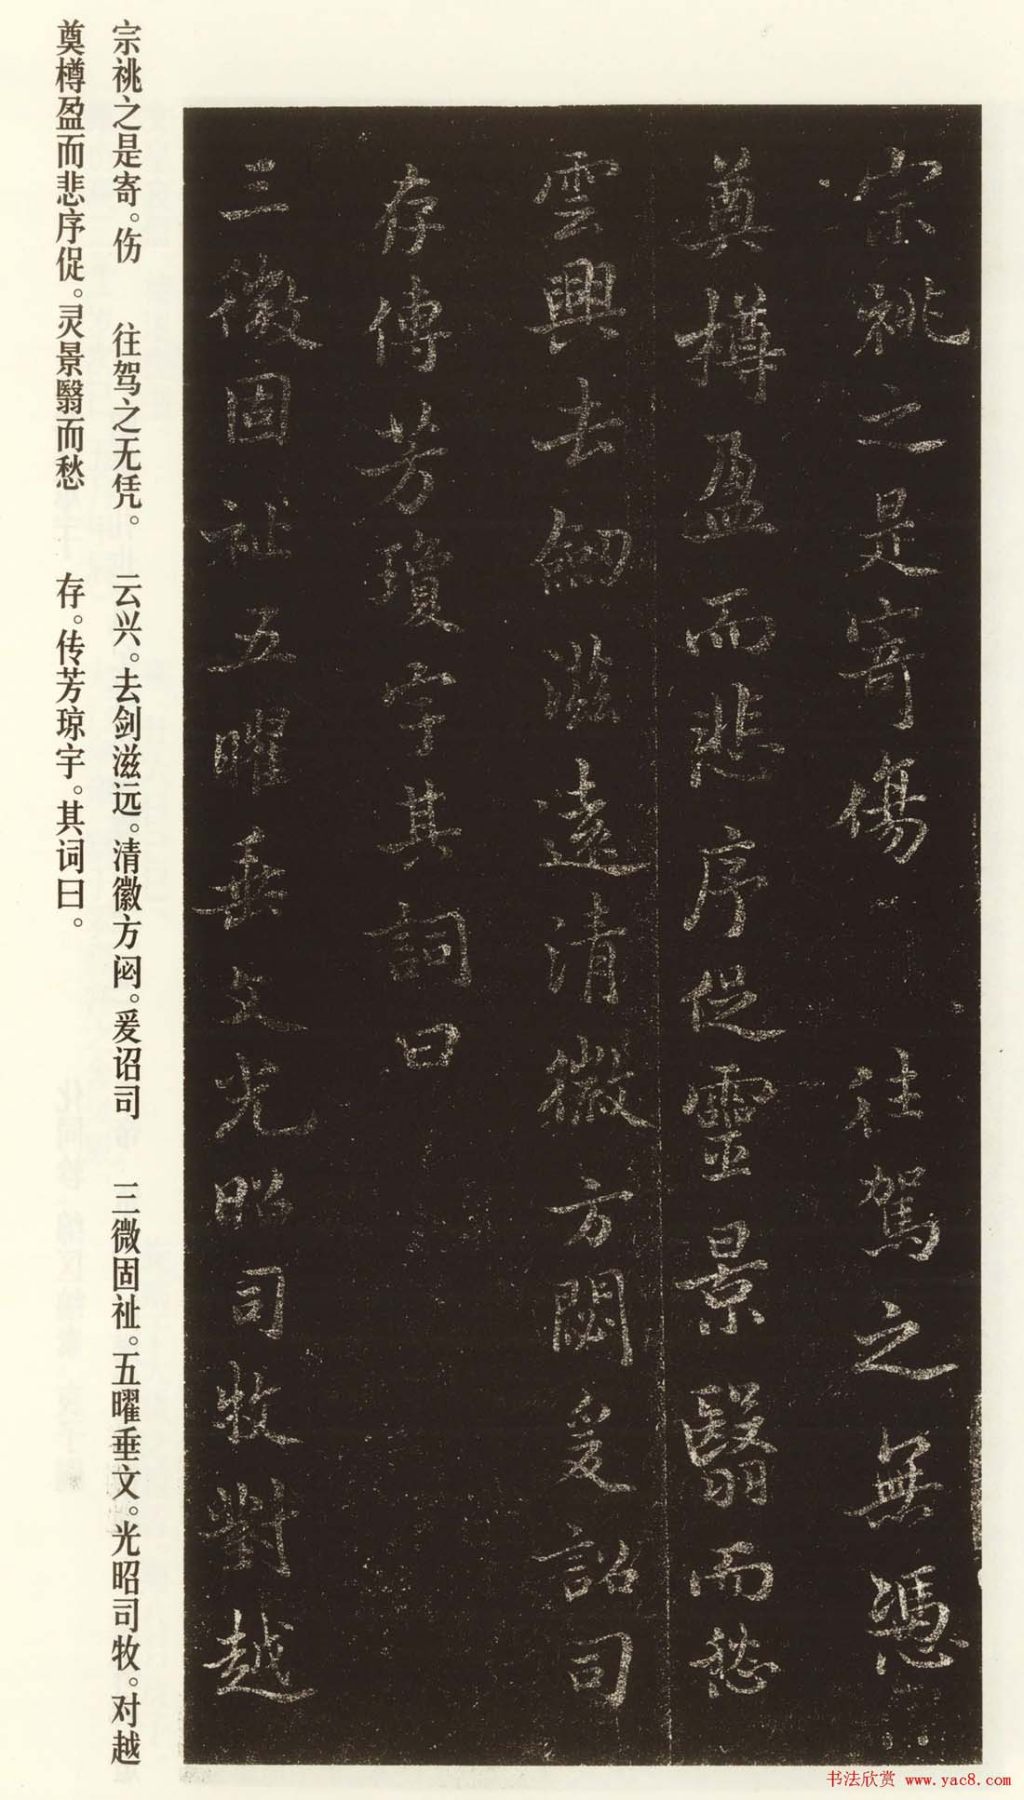 宗祧之是寄傷往駕之無憑
奠樽盈而悲序促靈景翳而愁
雲興去劒滋遠清徽方閟爰詔司
存傳芳瓊宇其詞曰
三微固祉五曜垂文光昭司牧對越
宗祧之是寄。伤 往驾之无凭。 云兴。去剑滋远。清徽方闷。爰诏司 三微固祉。五曜垂文。光昭司牧。对越
奠樽盈而悲序促。灵景翳而愁 存。传芳琼宇。其词曰。
书法欣赏 www.yac8.com